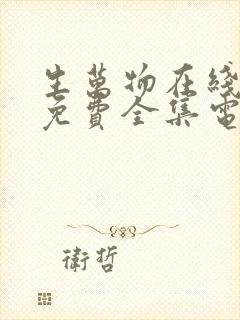 生萬物在綫
免費全集電
衛哲